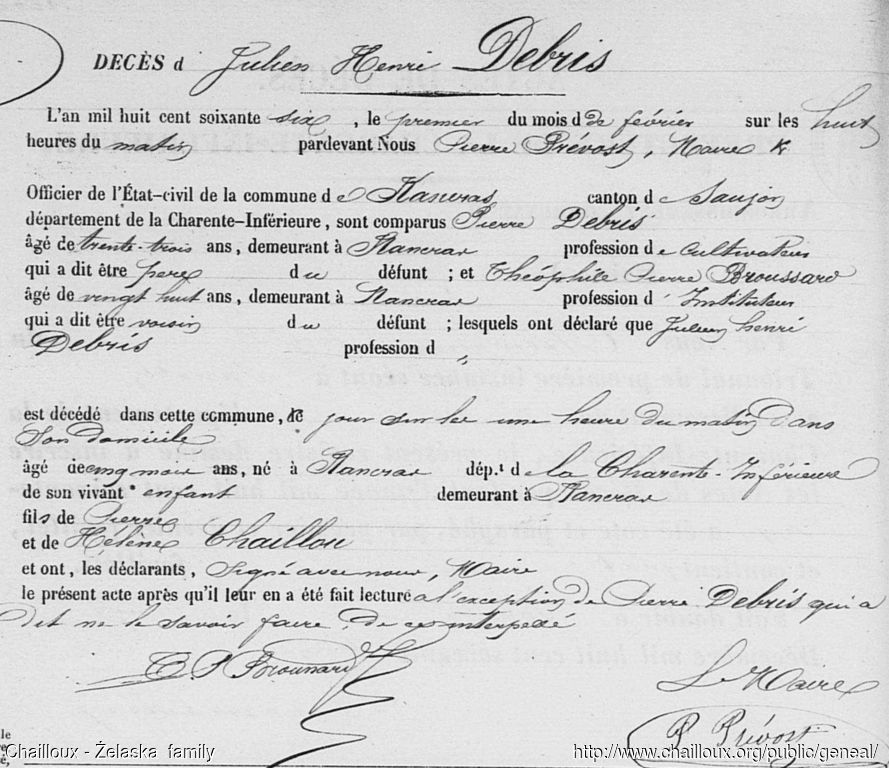 DECÈS d Julien Henri Debris
L'an mil huit cent soixante six , le premier du mois d de février sur les huit
heures du matin pardevant Nous Pierre Prévost, Maire &
Officier de l'État-civil de la commune d e Nancras canton d e Saujon
département de la Charente-Inférieure, sont comparus Pierre Debris
âgé de trente-trois ans, demeurant à Nancras profession d e cultivateur
qui a dit être père d u défunt ; et Théophile Pierre Broussard
âgé de vingt huit ans, demeurant à Nancras profession d' Instituteur
qui a dit être voisin d u défunt ; lesquels ont déclaré que Julien henri
Debris profession d "
est décédé dans cette commune, ce jour sur les une heure du matin dans
son domicile
âgé de cinq mois ans, né à Nancras dép.t d e la Charente-Inférieure
de son vivant enfant demeurant à Nancras
fils de Pierre
et de Hélène Chaillou
et ont, les déclarants, signé avec nous, Maire
le présent acte après qu'il leur en a été fait lecture a l'exception de Pierre Debris qui a
dit ne le savoir faire de ce interpellé
T P Broussard
Le Maire
P Prévost
le
Chailloux - Želaska family http://www.chailloux.org/public/geneal/